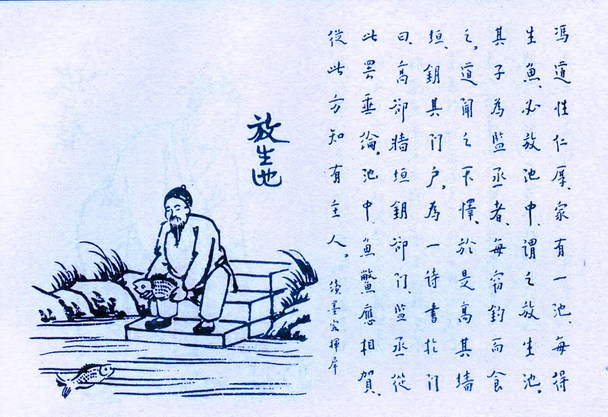 馮道性仁厚、家有一池、每得
生魚、必放池中、謂之放生池。
其子為監丞者、每窃釣而食
之。道聞之不懌、於是高其墻
垣、鑰其门户、為一詩書於门
曰、高却墻垣鑰却门、監丞從
此罢垂綸。池中魚鱉應相賀、
從此方知有主人。
續墨客揮犀
放生池